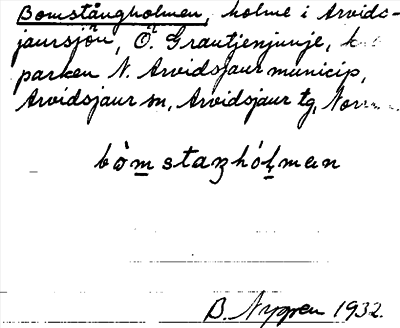 Bomstångholmen, holme i Arvids-
jaursjön, Ö. Grautjenjunje,
parken N. Arvidsjaur municip,
Arvidsjaur sn, Arvidsjaur tg,
bòm̲staŋhól̲mən
B. Nygren 1932.